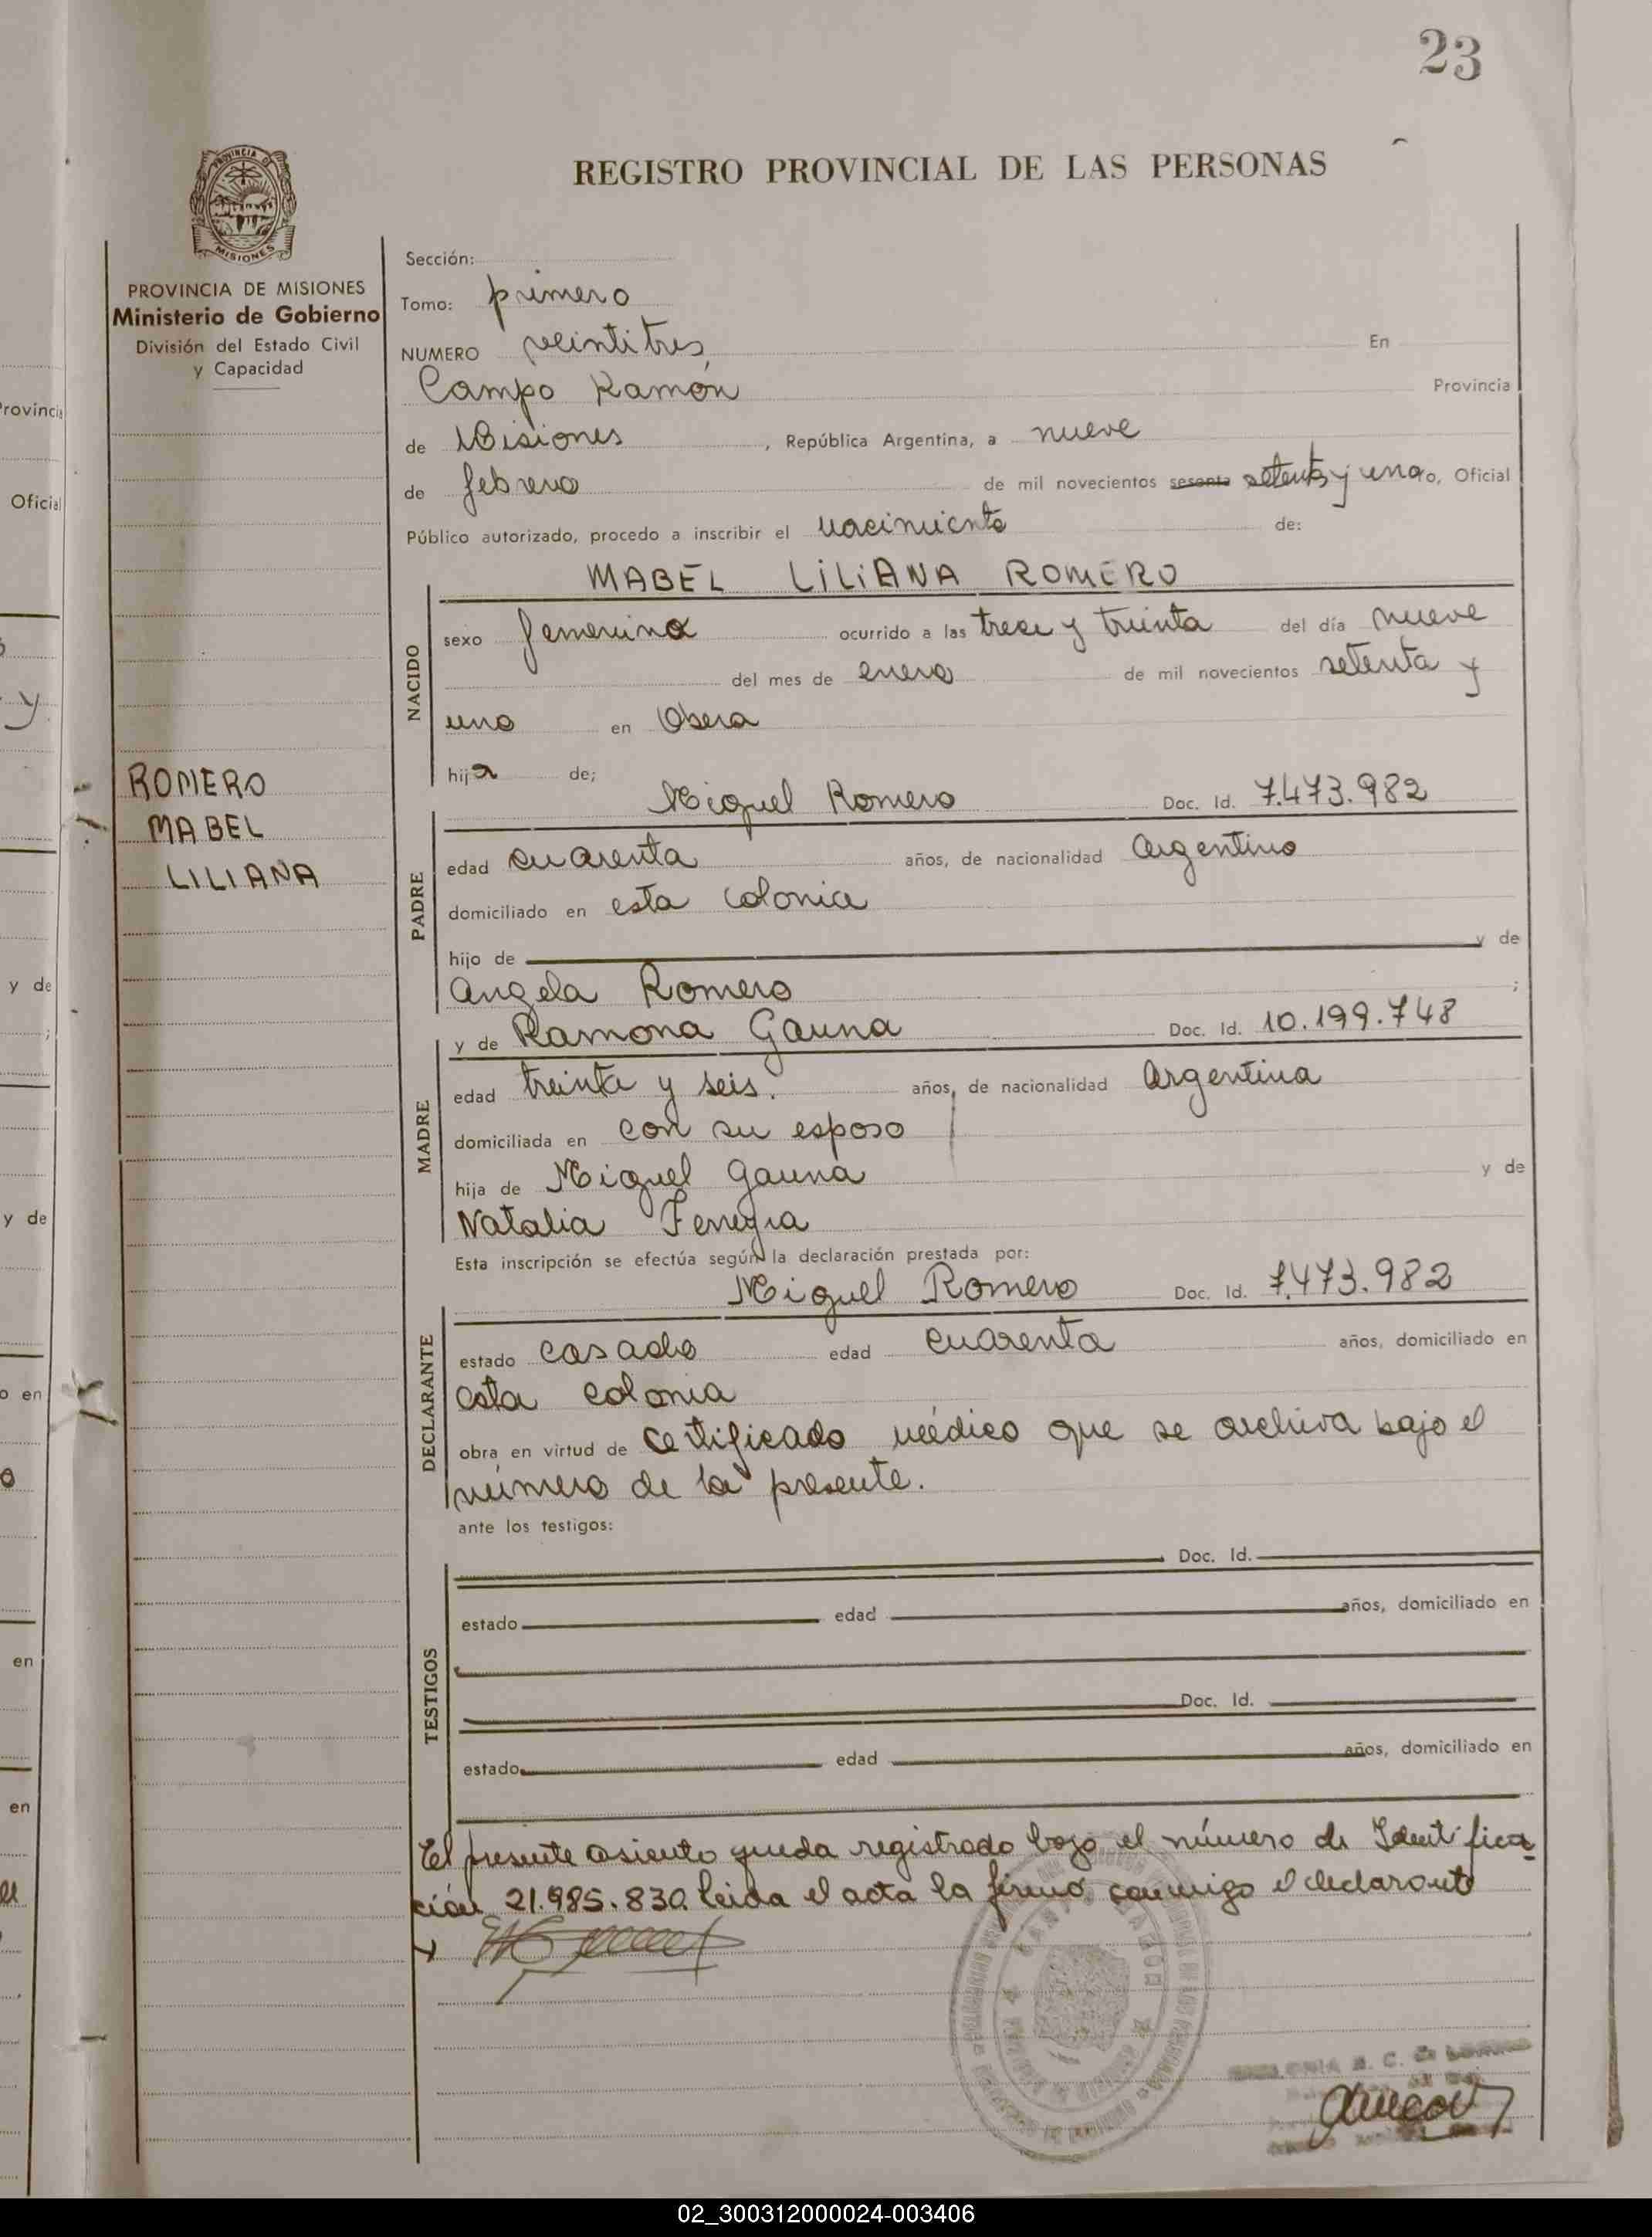 23
REGISTRO PROVINCIAL DE LAS PERSONAS
PROVINCIA DE
MISIONES
PROVINCIA DE MISIONES
Ministerio de Gobierno
División del Estado Civil
y Capacidad
ROMERO
MABEL
LILIANA
Sección:
Tomo: primero
NUMERO veintitres, En
Campo Ramón Provincia
de Misiones , República Argentina, a nueve
de febrero de mil novecientos sesenta setenta y uno, Oficial
Público autorizado, procedo a inscribir el nacimiento de:
MABEL LILIANA ROMERO
NACIDO
sexo femenino ocurrido a las trece y treinta del día nueve
del mes de enero de mil novecientos setenta y
uno en Obera
hija de;
Miguel Romero Doc. Id. 7.473.982
PADRE
edad cuarenta años, de nacionalidad argentino
domiciliado en esta colonia
hijo de y de
Angela Romero ;
y de Ramona Gauna Doc. Id. 10.199.748
MADRE
edad treinta y seis. años, de nacionalidad argentina
domiciliada en con su esposo
hija de Miguel Gauna y de
Natalia Ferreyra
Esta inscripción se efectúa según la declaración prestada por:
Miguel Romero Doc. Id. 7.473.982
DECLARANTE
estado casado edad cuarenta años, domiciliado en
esta colonia
obra en virtud de certificado médico que se archiva bajo el
número de la presente.
ante los testigos:
TESTIGOS
Doc. Id.
estado edad años, domiciliado en
Doc. Id.
estado edad años, domiciliado en
El presente asiento queda registrado bajo el número de Identifica-
ción 21.985.830. leida el acta la firmó conmigo el declarante
02_300312000024-003406